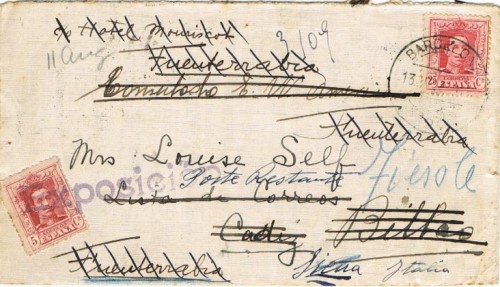 c/o Hotel Mouriscot
11 Aug
3/09
Fuenterrabia
BARCELONA
13
25
ESPAÑA
Consulado
Fuenterrabia
Mrs Louise Self
Exposición
Poste Restante
Fiesole
Lista de Correos
5 ESPAÑA Cs
Cadiz
Bilbao
Fuenterrabia
Siena Italia